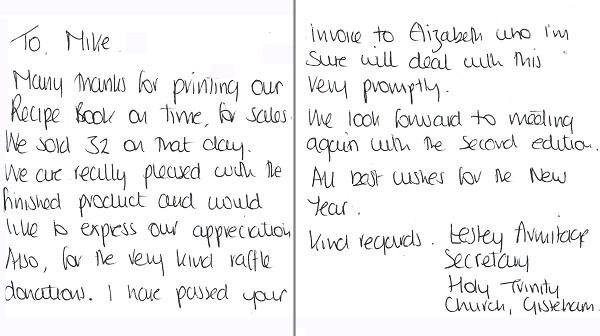 To, Mike.
Many thanks for printing our
Recipe Book on time, for sales.
We sold 32 on that day.
We are really pleased with the
finished product and would
like to express our appreciation
Also, for the very kind raffle
donations. I have passed your
invoice to Elizabeth who I'm
sure will deal with this
very promptly.
We look forward to meeting
again with the second edition.
All best wishes for the New
Year.
Kind regards. Lesley Armitage
Secretary
Holy Trinity
Church, Gisleham.